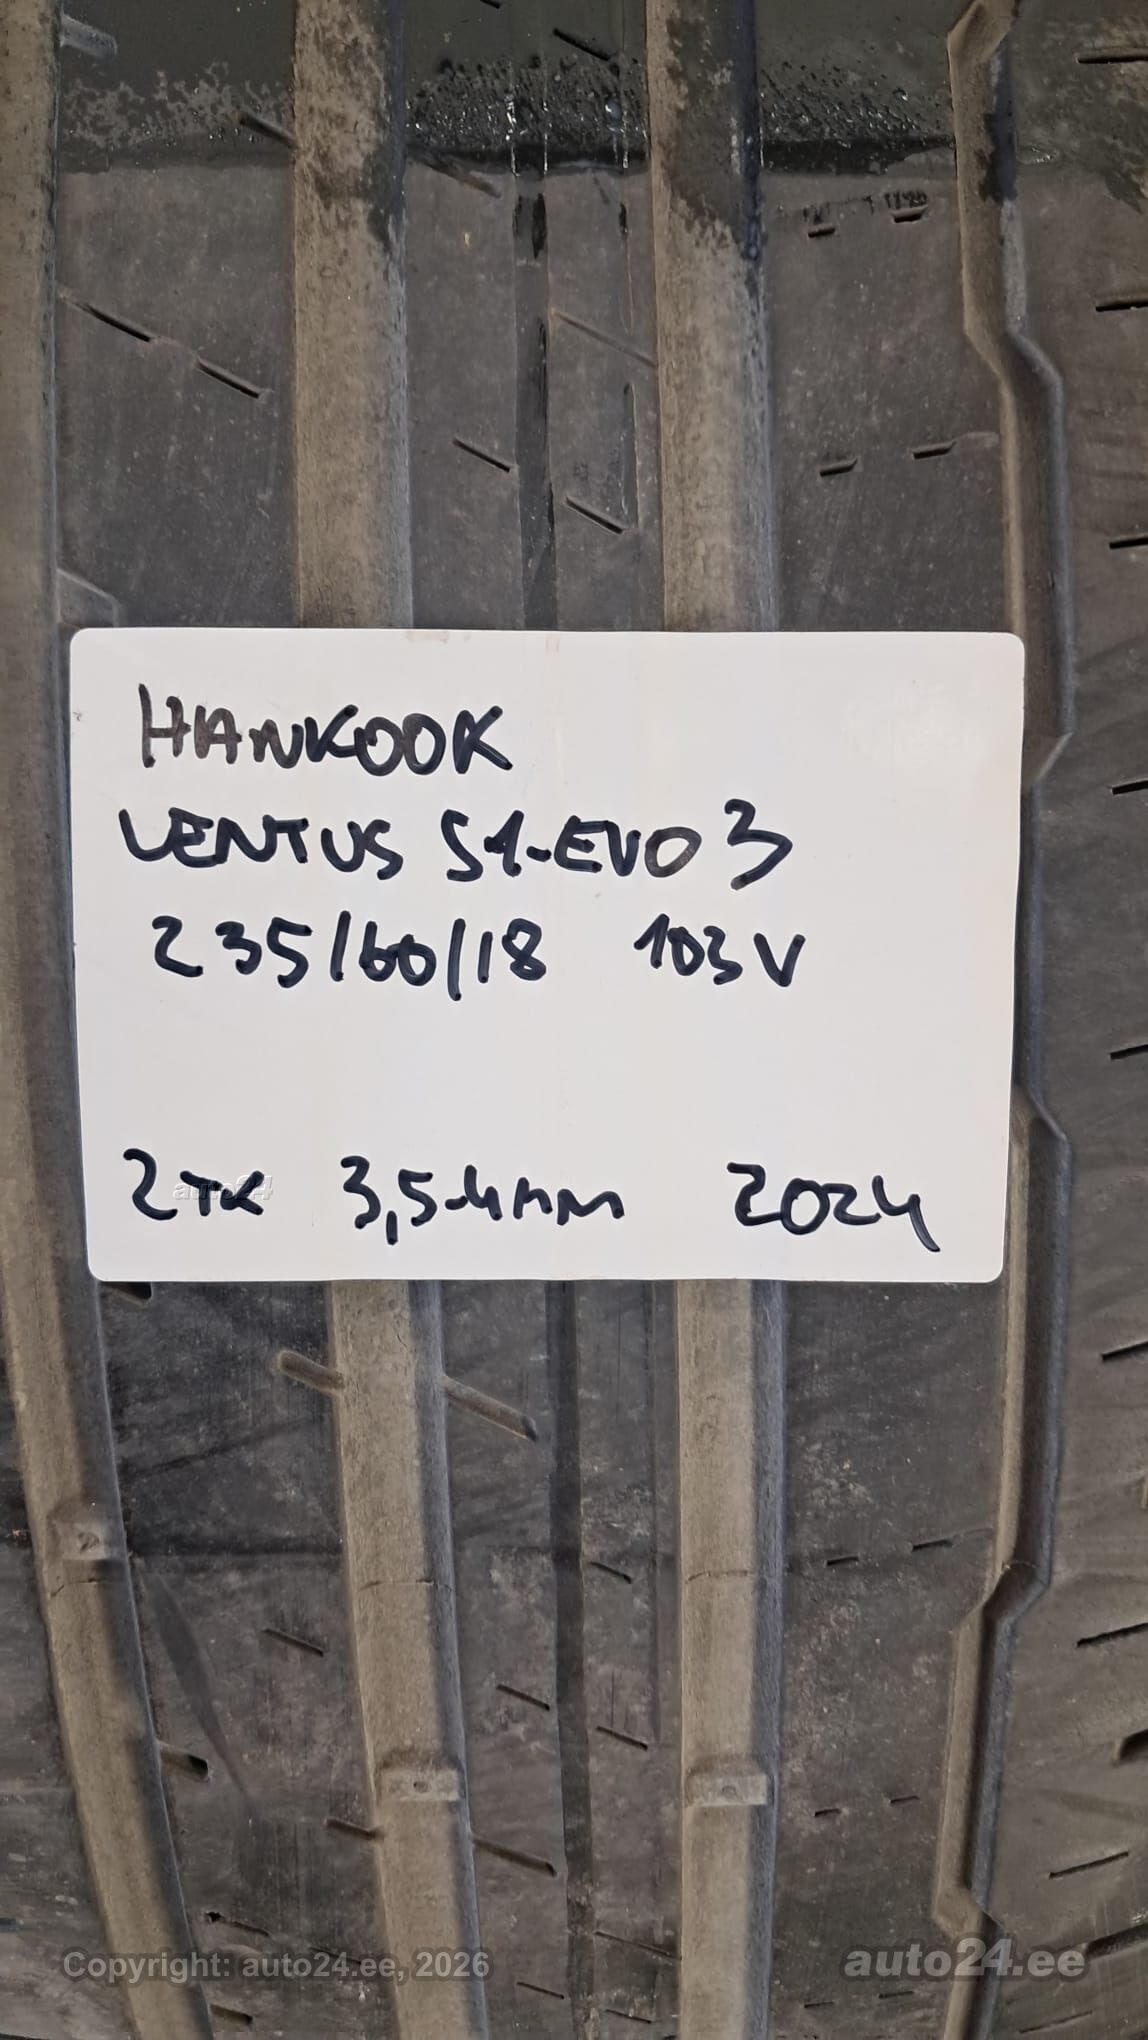 HANKOOK
VENTUS S1-EVO 3
235/60/18 103V
2TK 3,5-4MM 2024
auto24
Copyright: auto24.ee, 2026
auto24.ee